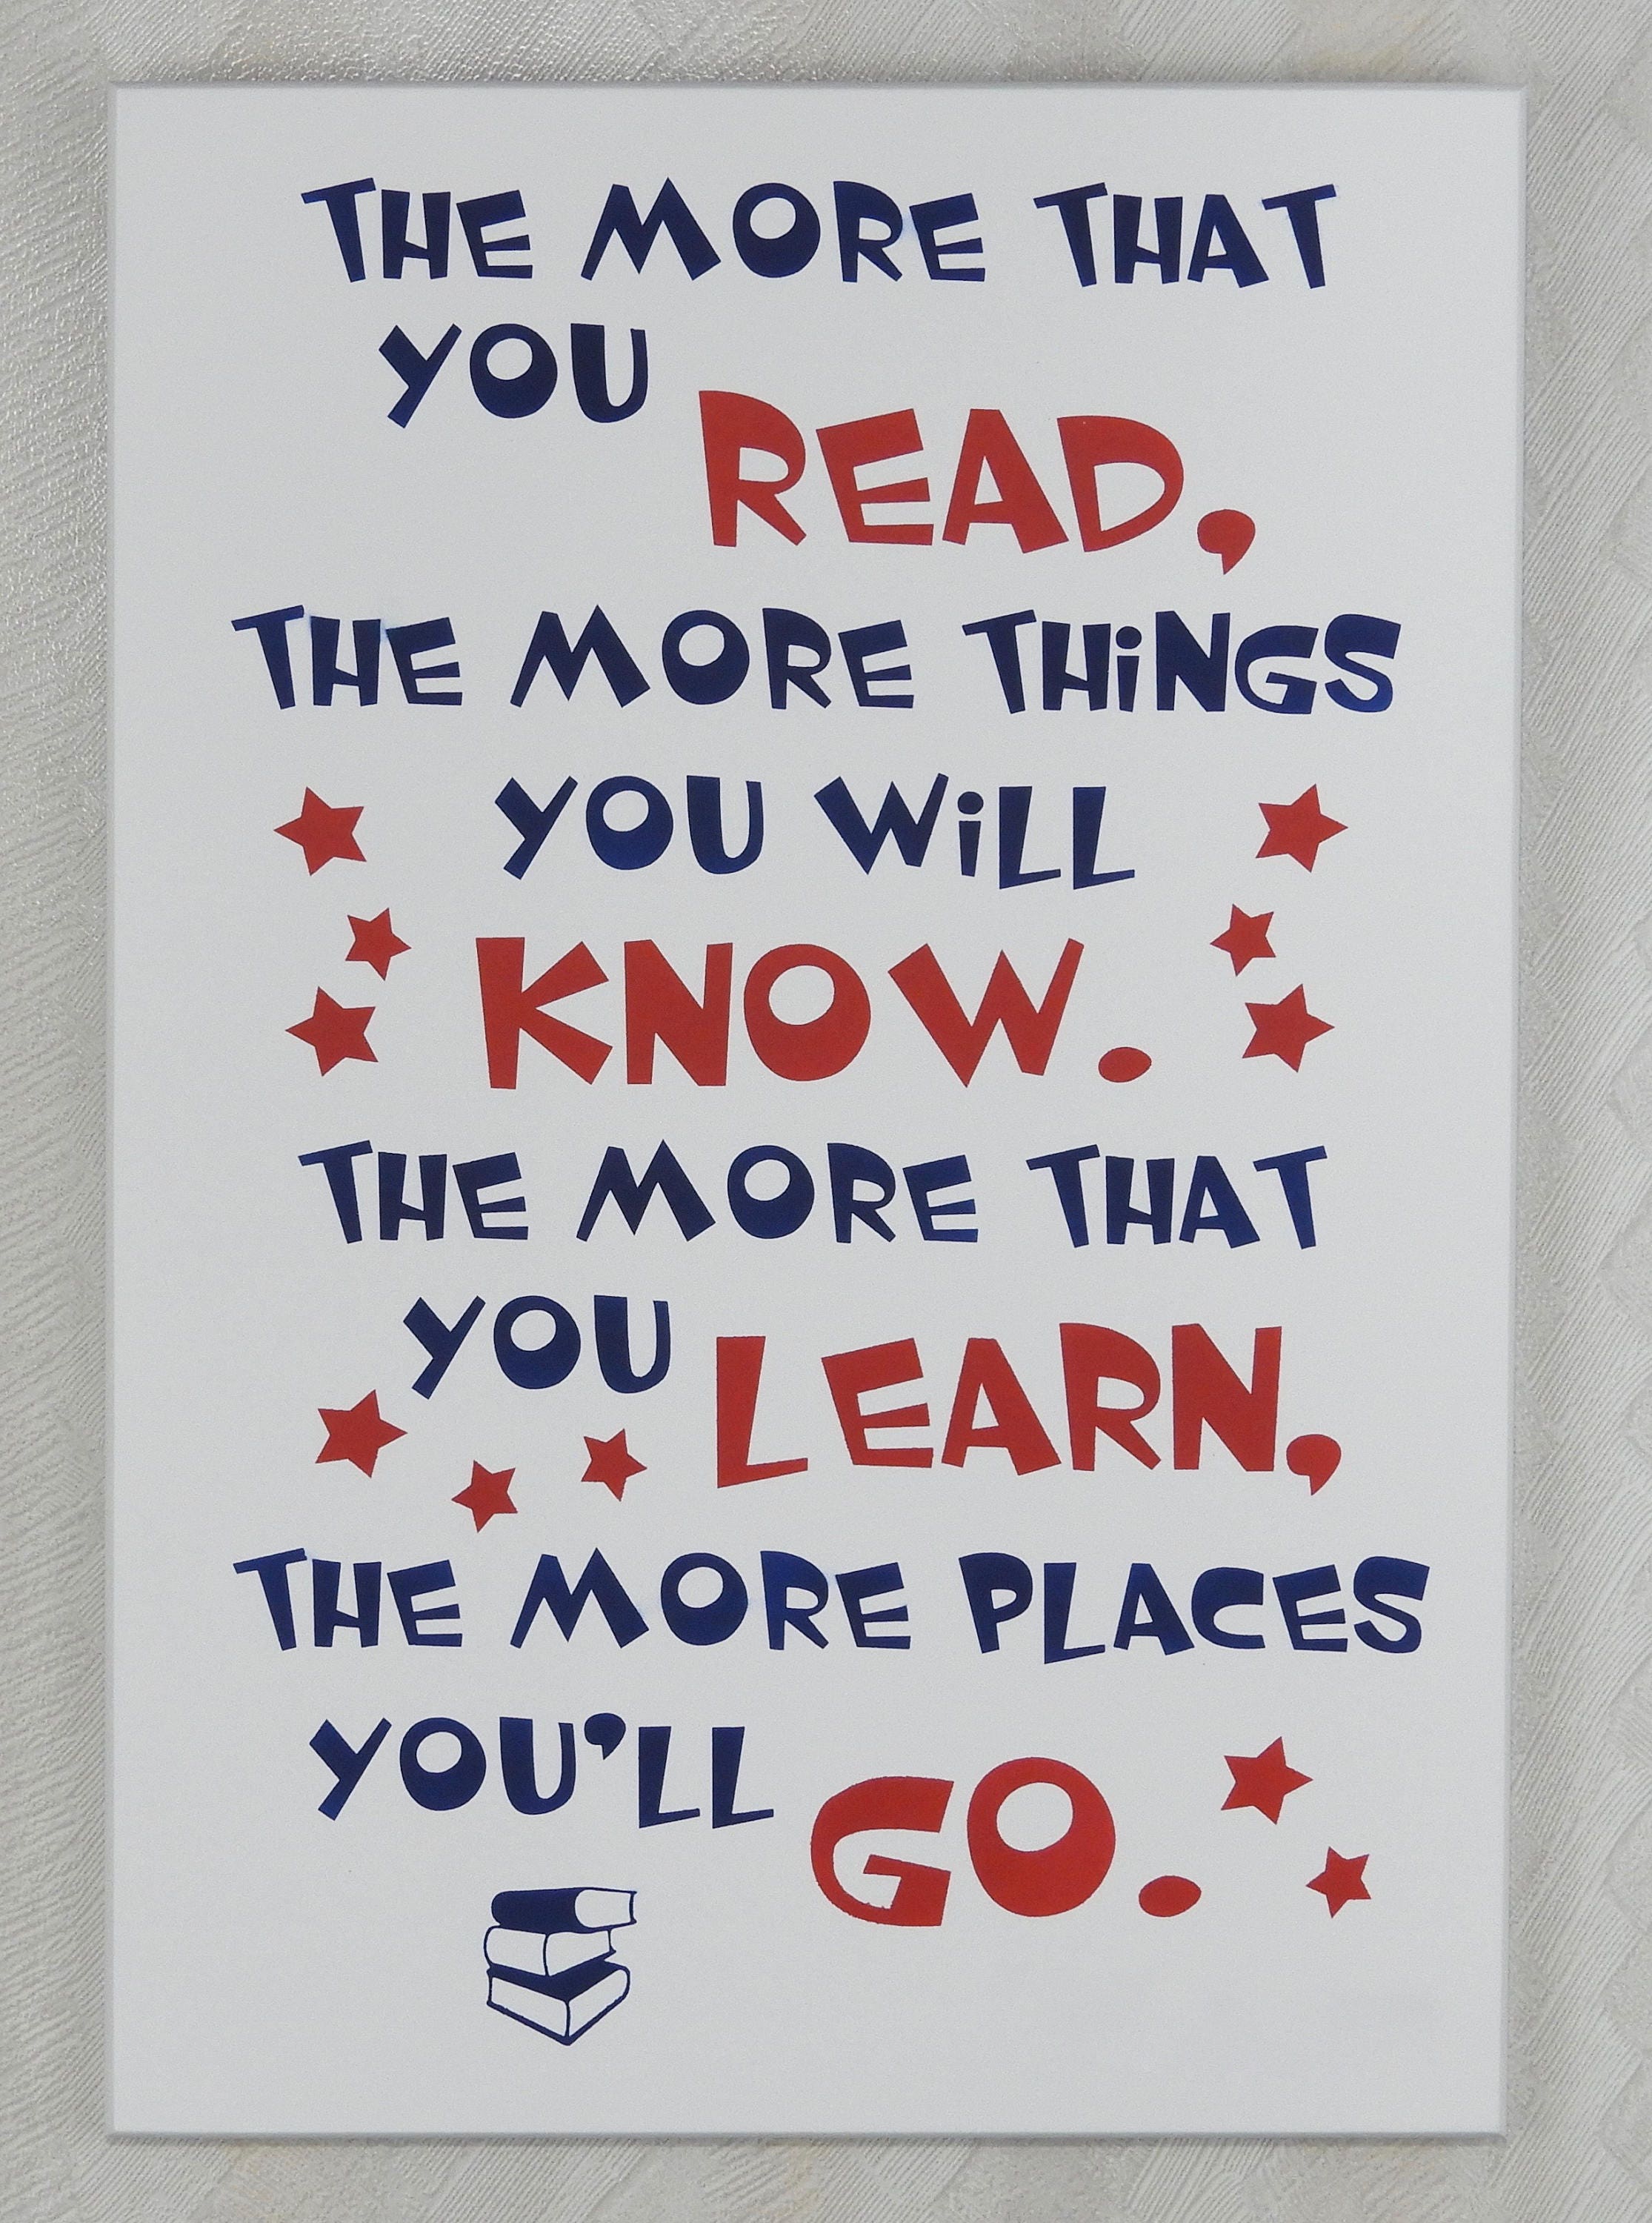 THE MORE THAT
YOU READ,
THE MORE THiNGS
YOU WiLL
KNOW.
THE MORE THAT
YOU LEARN,
THE MORE PLACES
YOU'LL GO.